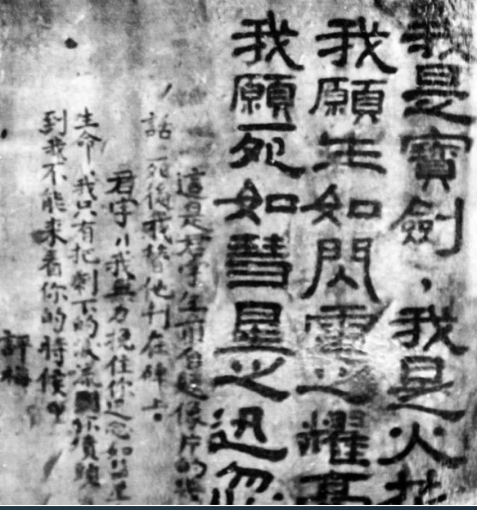 我是寶劍，我是火花
我願生如閃電之耀亮
我願死如彗星之迅忽
這是君宇生前自題像片的幾
句話，死後我替他刊在碑上。
君宇！我無力挽住你迅忽如彗星
生命，我只有把剩下的淚流到你墳頭，
到我不能來看你的時候。
評梅